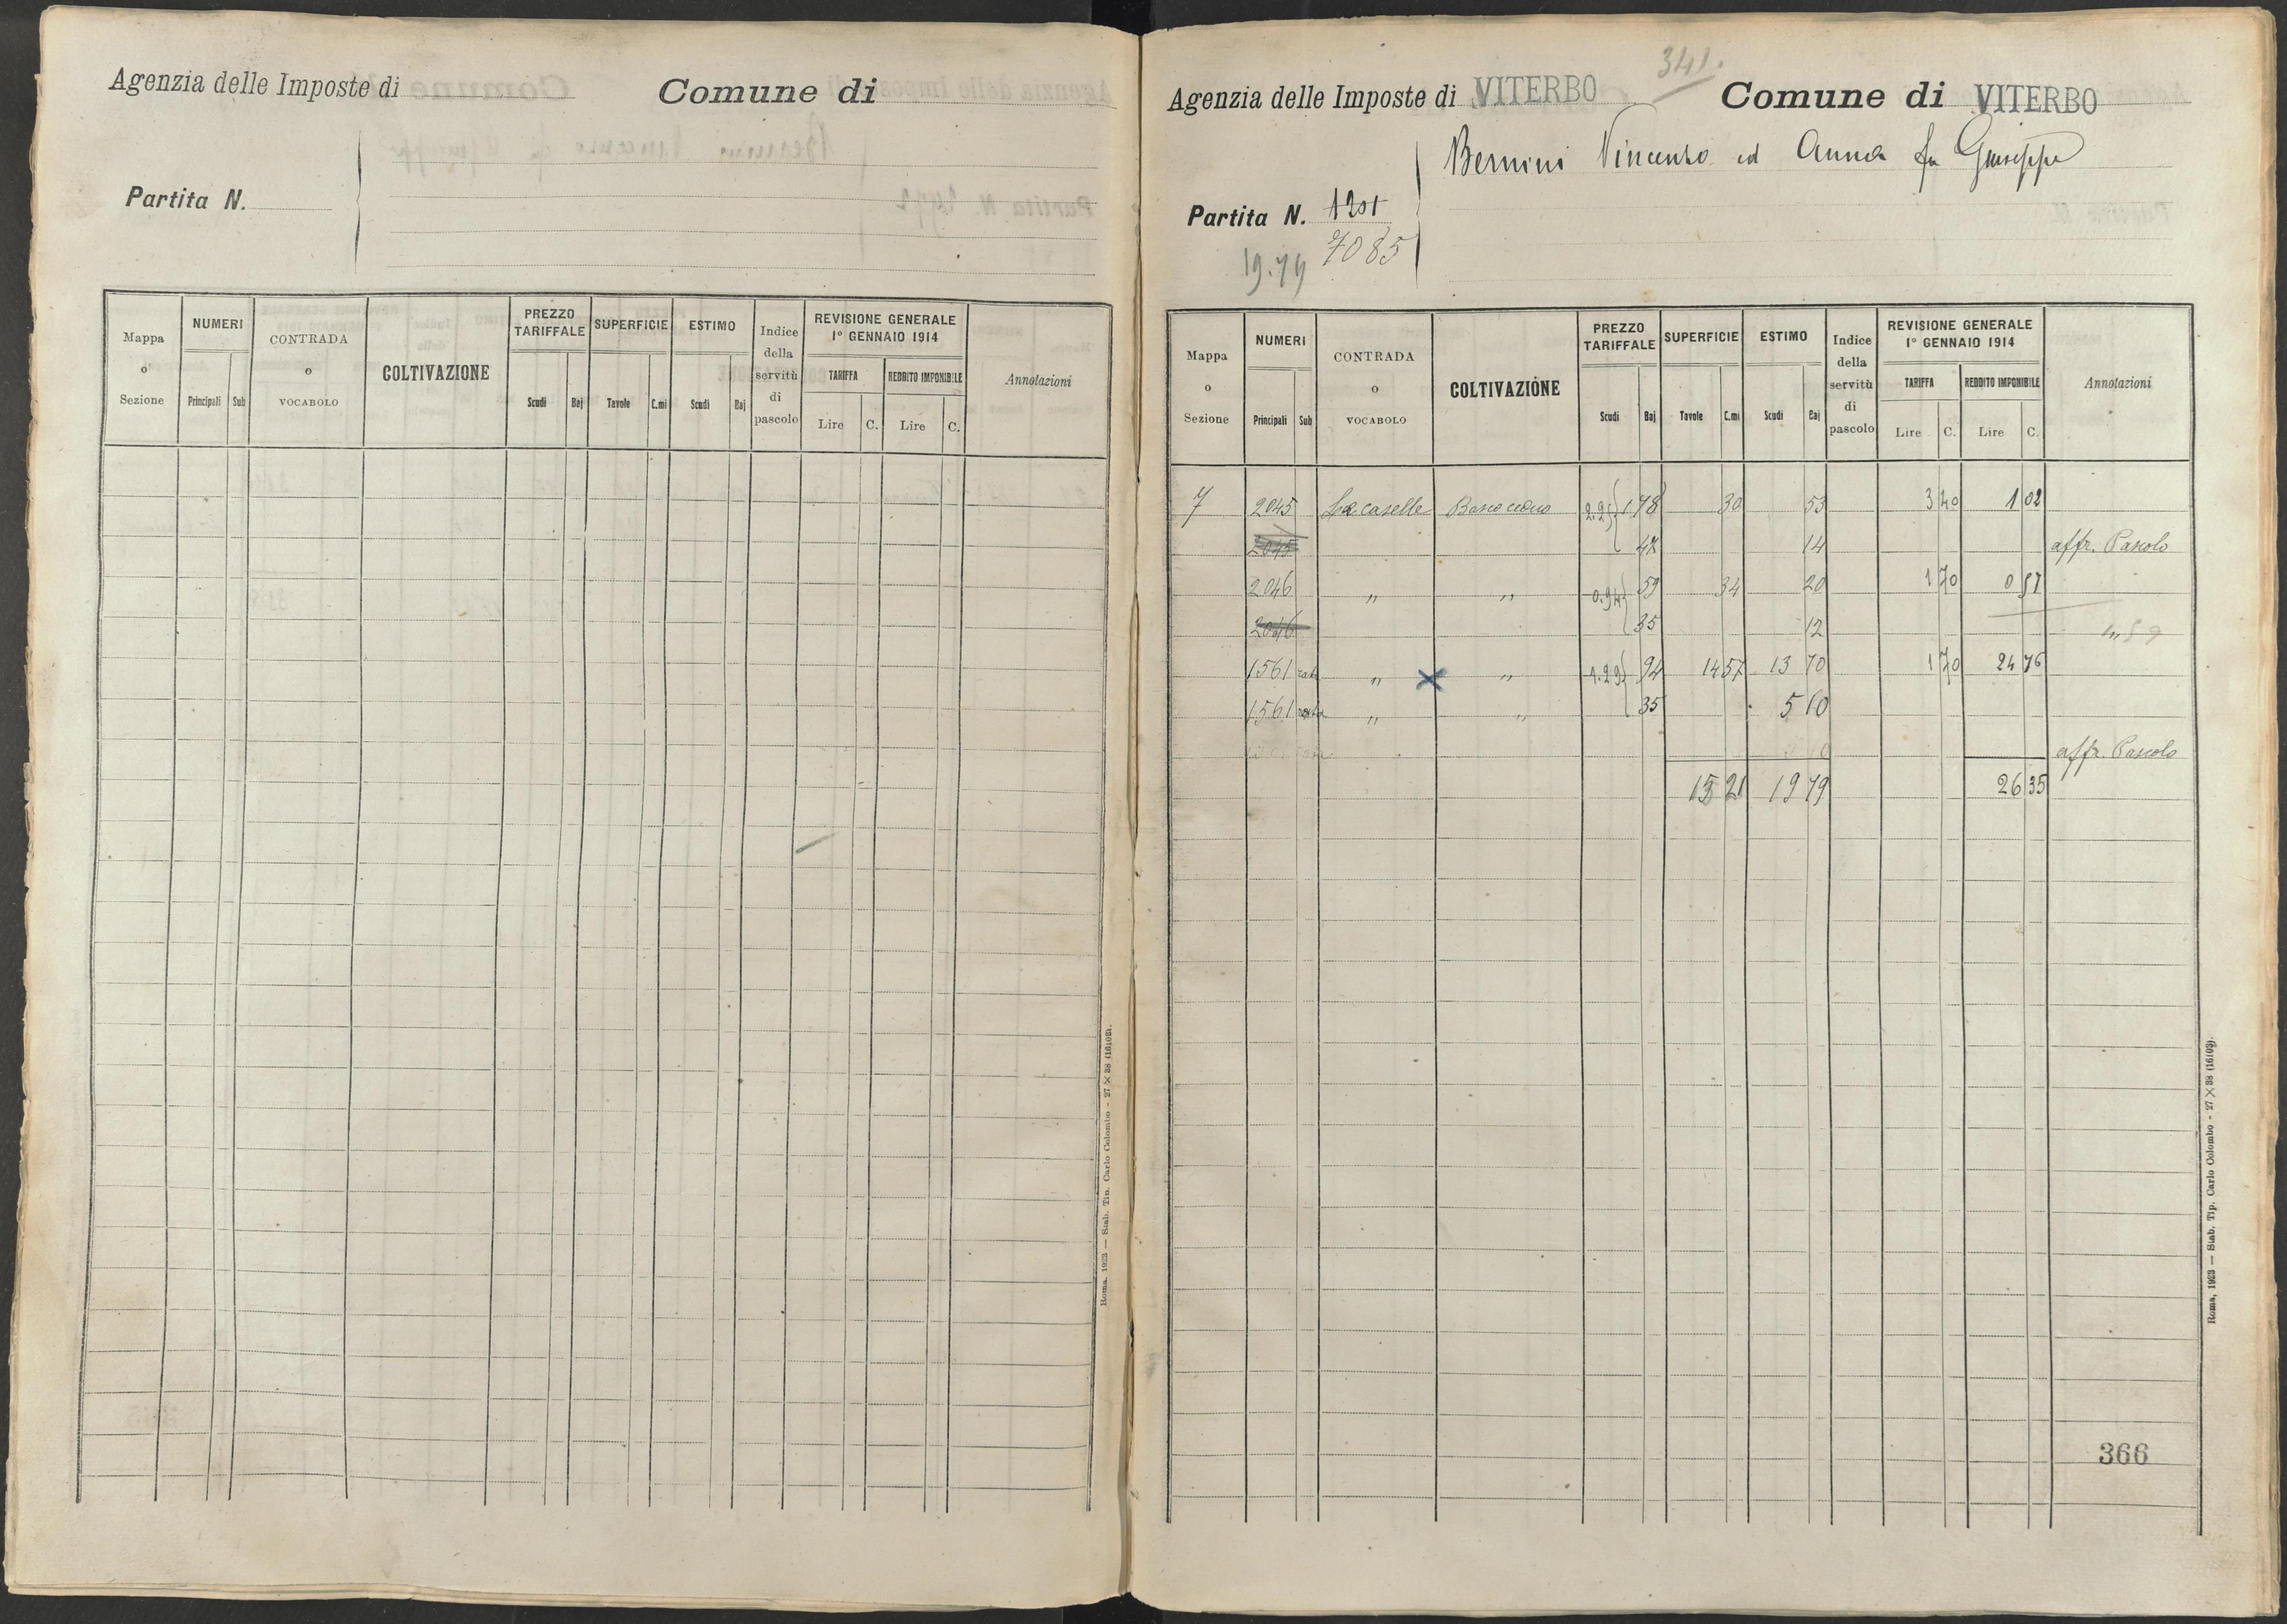 Agenzia delle Imposte di
Comune di
Partita N.
Mappa o Sezione
NUMERI
Principali Sub
CONTRADA o VOCABOLO
COLTIVAZIONE
PREZZO TARIFFALE
Scudi Baj
SUPERFICIE
Tavole C.mi
ESTIMO
Scudi Baj
Indice della servitù di pascolo
REVISIONE GENERALE
1º GENNAIO 1914
TARIFFA REDDITO IMPONIBILE
Lire C. Lire C.
Annotazioni
Roma, 1923 — Stab. Tip. Carlo Colombo - 27 × 38 (16103).
341.
Agenzia delle Imposte di VITERBO Comune di VITERBO
Bernini Vincenzo ed Anna fu Giuseppe
Partita N. 1201
7085
19.79
Mappa o Sezione
NUMERI
Principali Sub
CONTRADA o VOCABOLO
COLTIVAZIONE
PREZZO TARIFFALE
Scudi Baj
SUPERFICIE
Tavole C.mi
ESTIMO
Scudi Baj
Indice della servitù di pascolo
REVISIONE GENERALE
1º GENNAIO 1914
TARIFFA REDDITO IMPONIBILE
Lire C. Lire C.
Annotazioni
7 2045 Le caselle Bosco ceduo 2.25 1 78 30 53 3 40 1 02
2045 47 14 affr. Pascolo
2046 " " 0.94 59 34 20 1 70 0 57
2046 35 12
1561 rata " " 1.29 94 14 57 13 70 1 70 24 76
1561 rata " " 35 5 10
affr. Pascolo
15 21 19 79 26 35
366
Roma, 1923 — Stab. Tip. Carlo Colombo - 27 × 38 (16103).